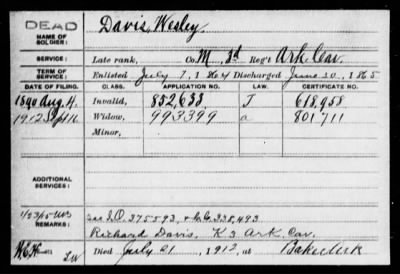 DEAD
NAME OF SOLDIER: Davis, Wesley.
SERVICE: Late rank, Co. M, 3d Reg't Ark Cav.
TERM OF SERVICE: Enlisted July 7, 1864 Discharged June 30, 1865
DATE OF FILING. CLASS. APPLICATION NO. LAW. CERTIFICATE NO.
1890 Aug. 4. Invalid, 852,633 J 618,958
1912 Sept 16 Widow, 993399 a 801711
Minor,
ADDITIONAL SERVICES:
REMARKS: See I.O. 375593, & C. 338,493
Richard Davis, K 3 Ark. Cav.
Died July 21, 1912, at Baker Ark